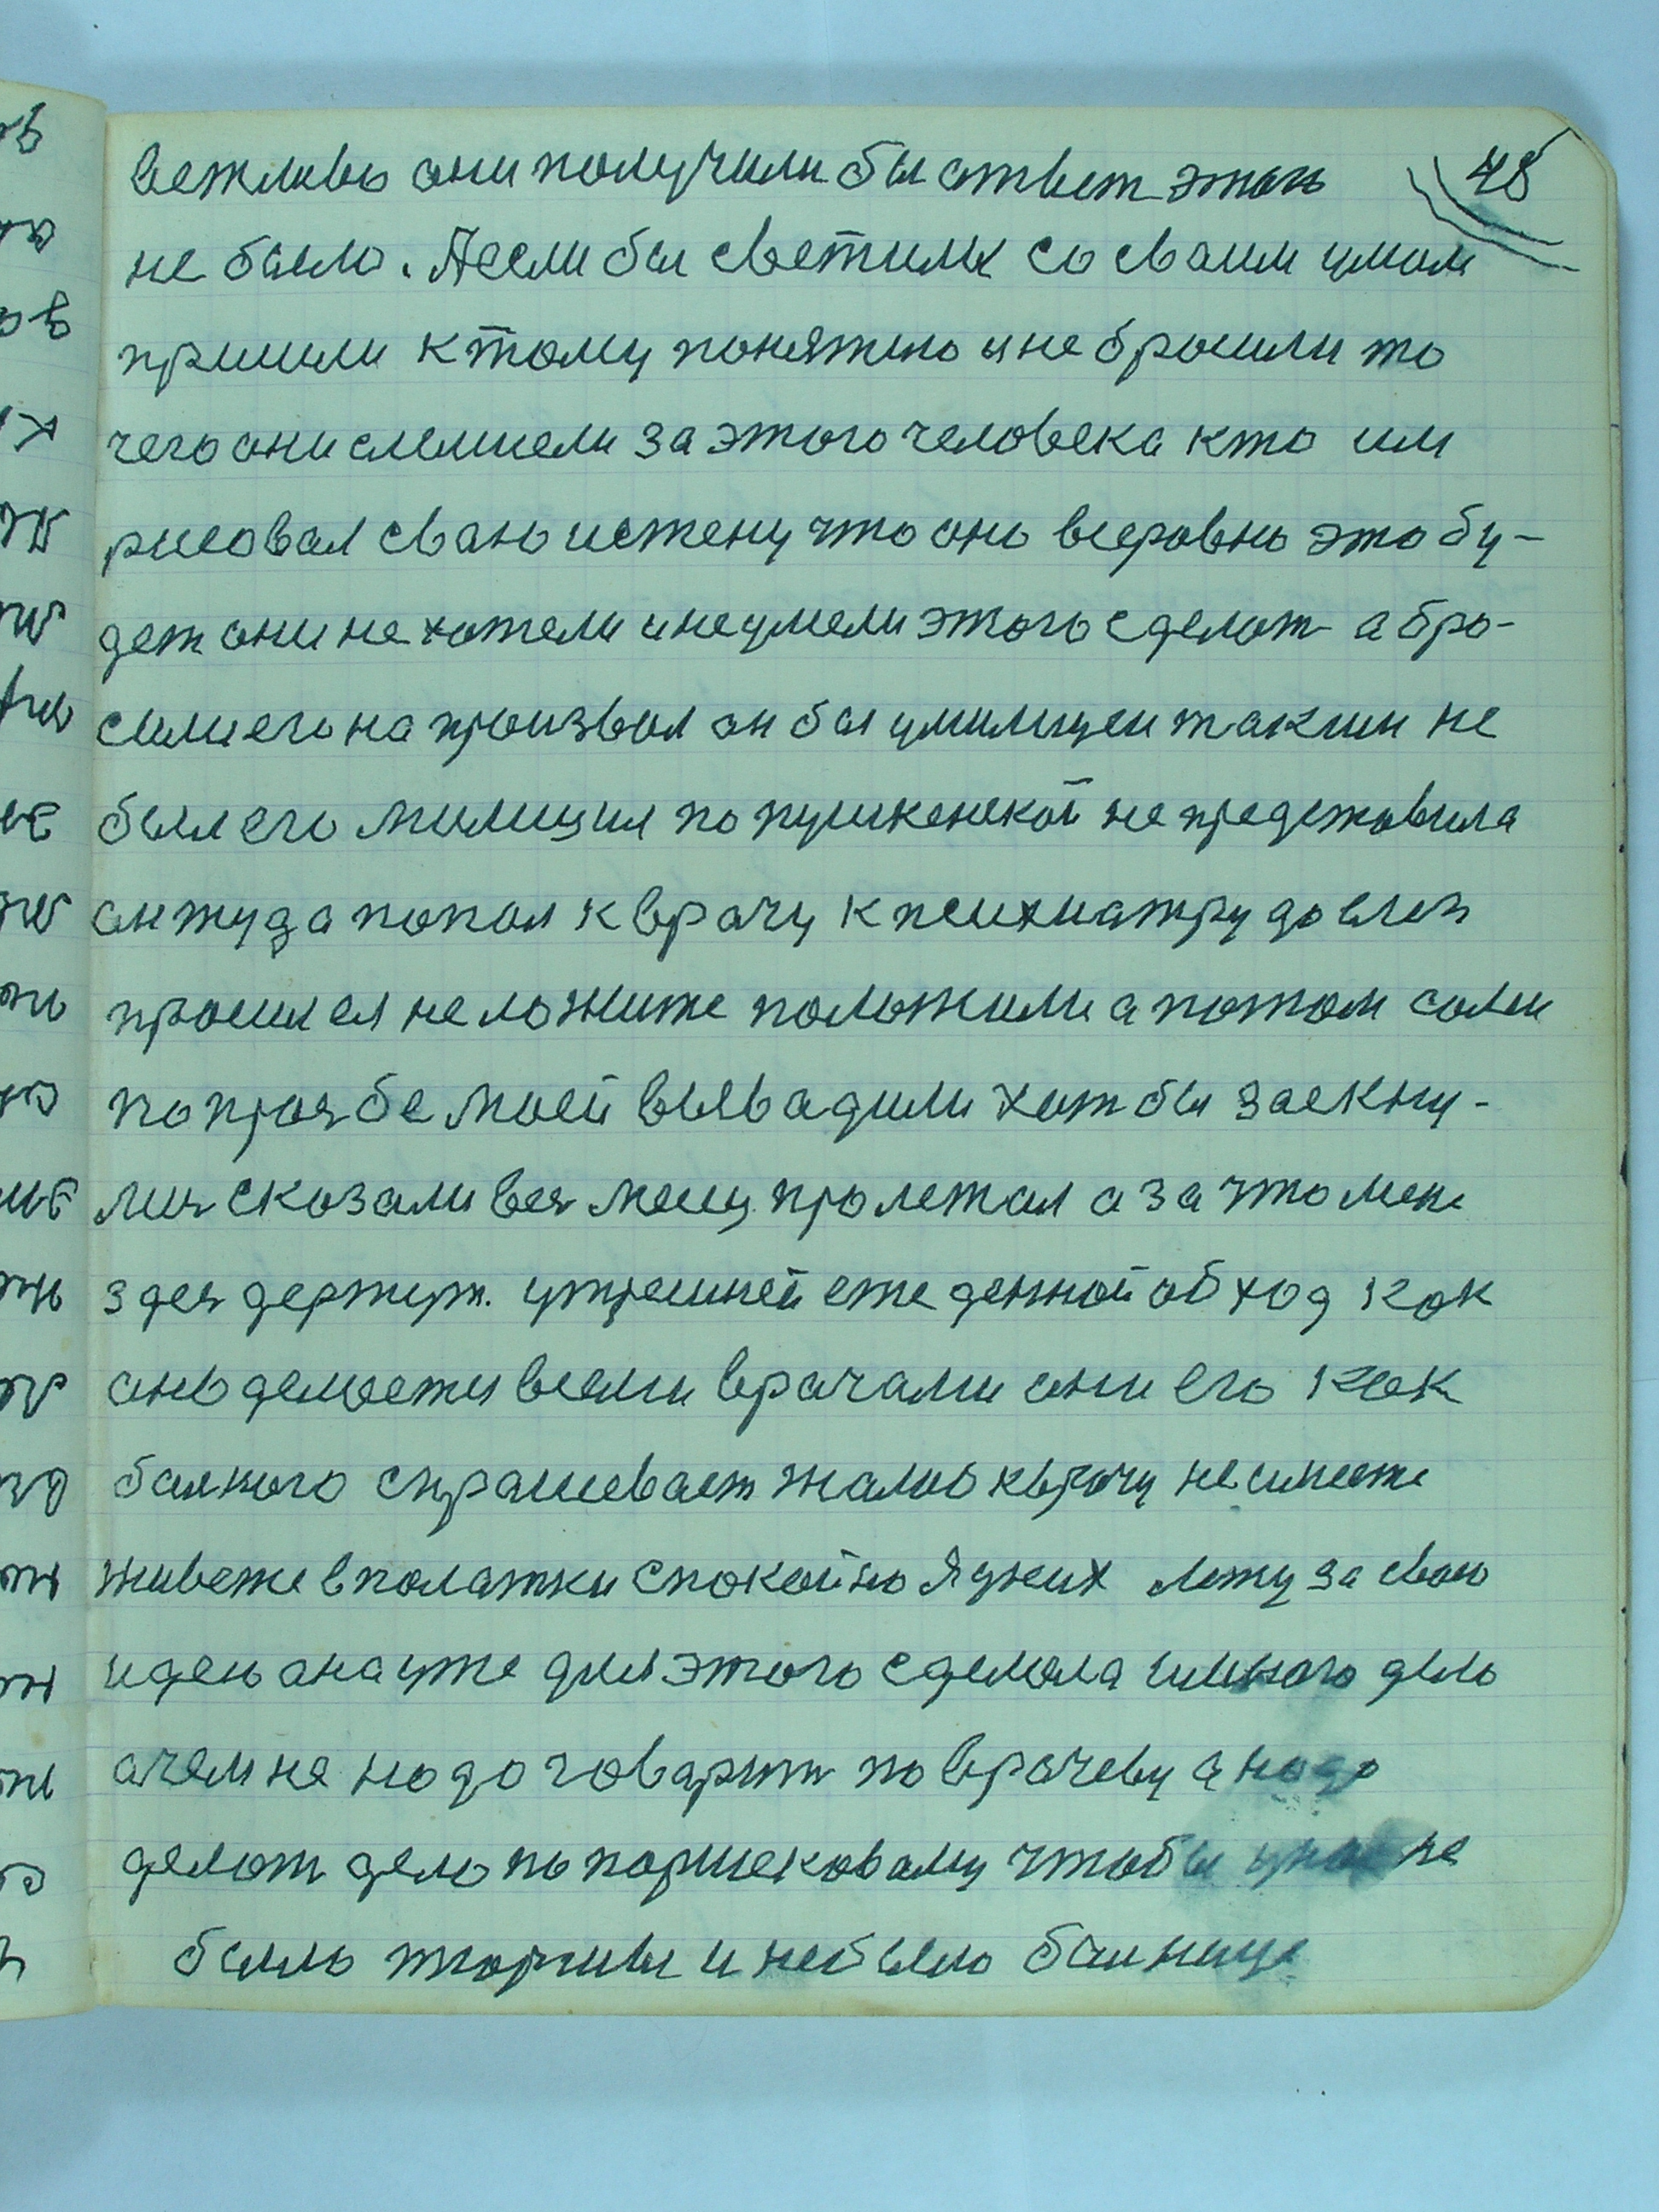 48
вежливо они получили бы ответ этого
не было. Аесли бы светилы со своим умом
пришли ктому понятию ине бросили то
чего они слышели за этого человека кто им
рисовал сваю истену что оно всеровно это бу-
дет они не хотели инеумели этого сделат а бро-
силиего на произвол он бы умилицеи таким не
был его милиция по пушкенской не представила
он туда попал к врачу к психиатру до слез
просился не ложите положили а потом сами
по прозбе моей вывадили хот бы заекну-
лис сказали вес месец пролежал а за что мене
здес держут. утрешней еже денной обход как
оно делоетя всеми врачами они его как
болного спрашевает жалоб кврачу не имеете
живете вполатки спокойно Яуних лежу за сваю
идею она уже для этого сделала имного дело
очем не надо говарит по врачеву а надо
делат дело по паршековаму чтобы унас не
было тюрмы и небыло болнице